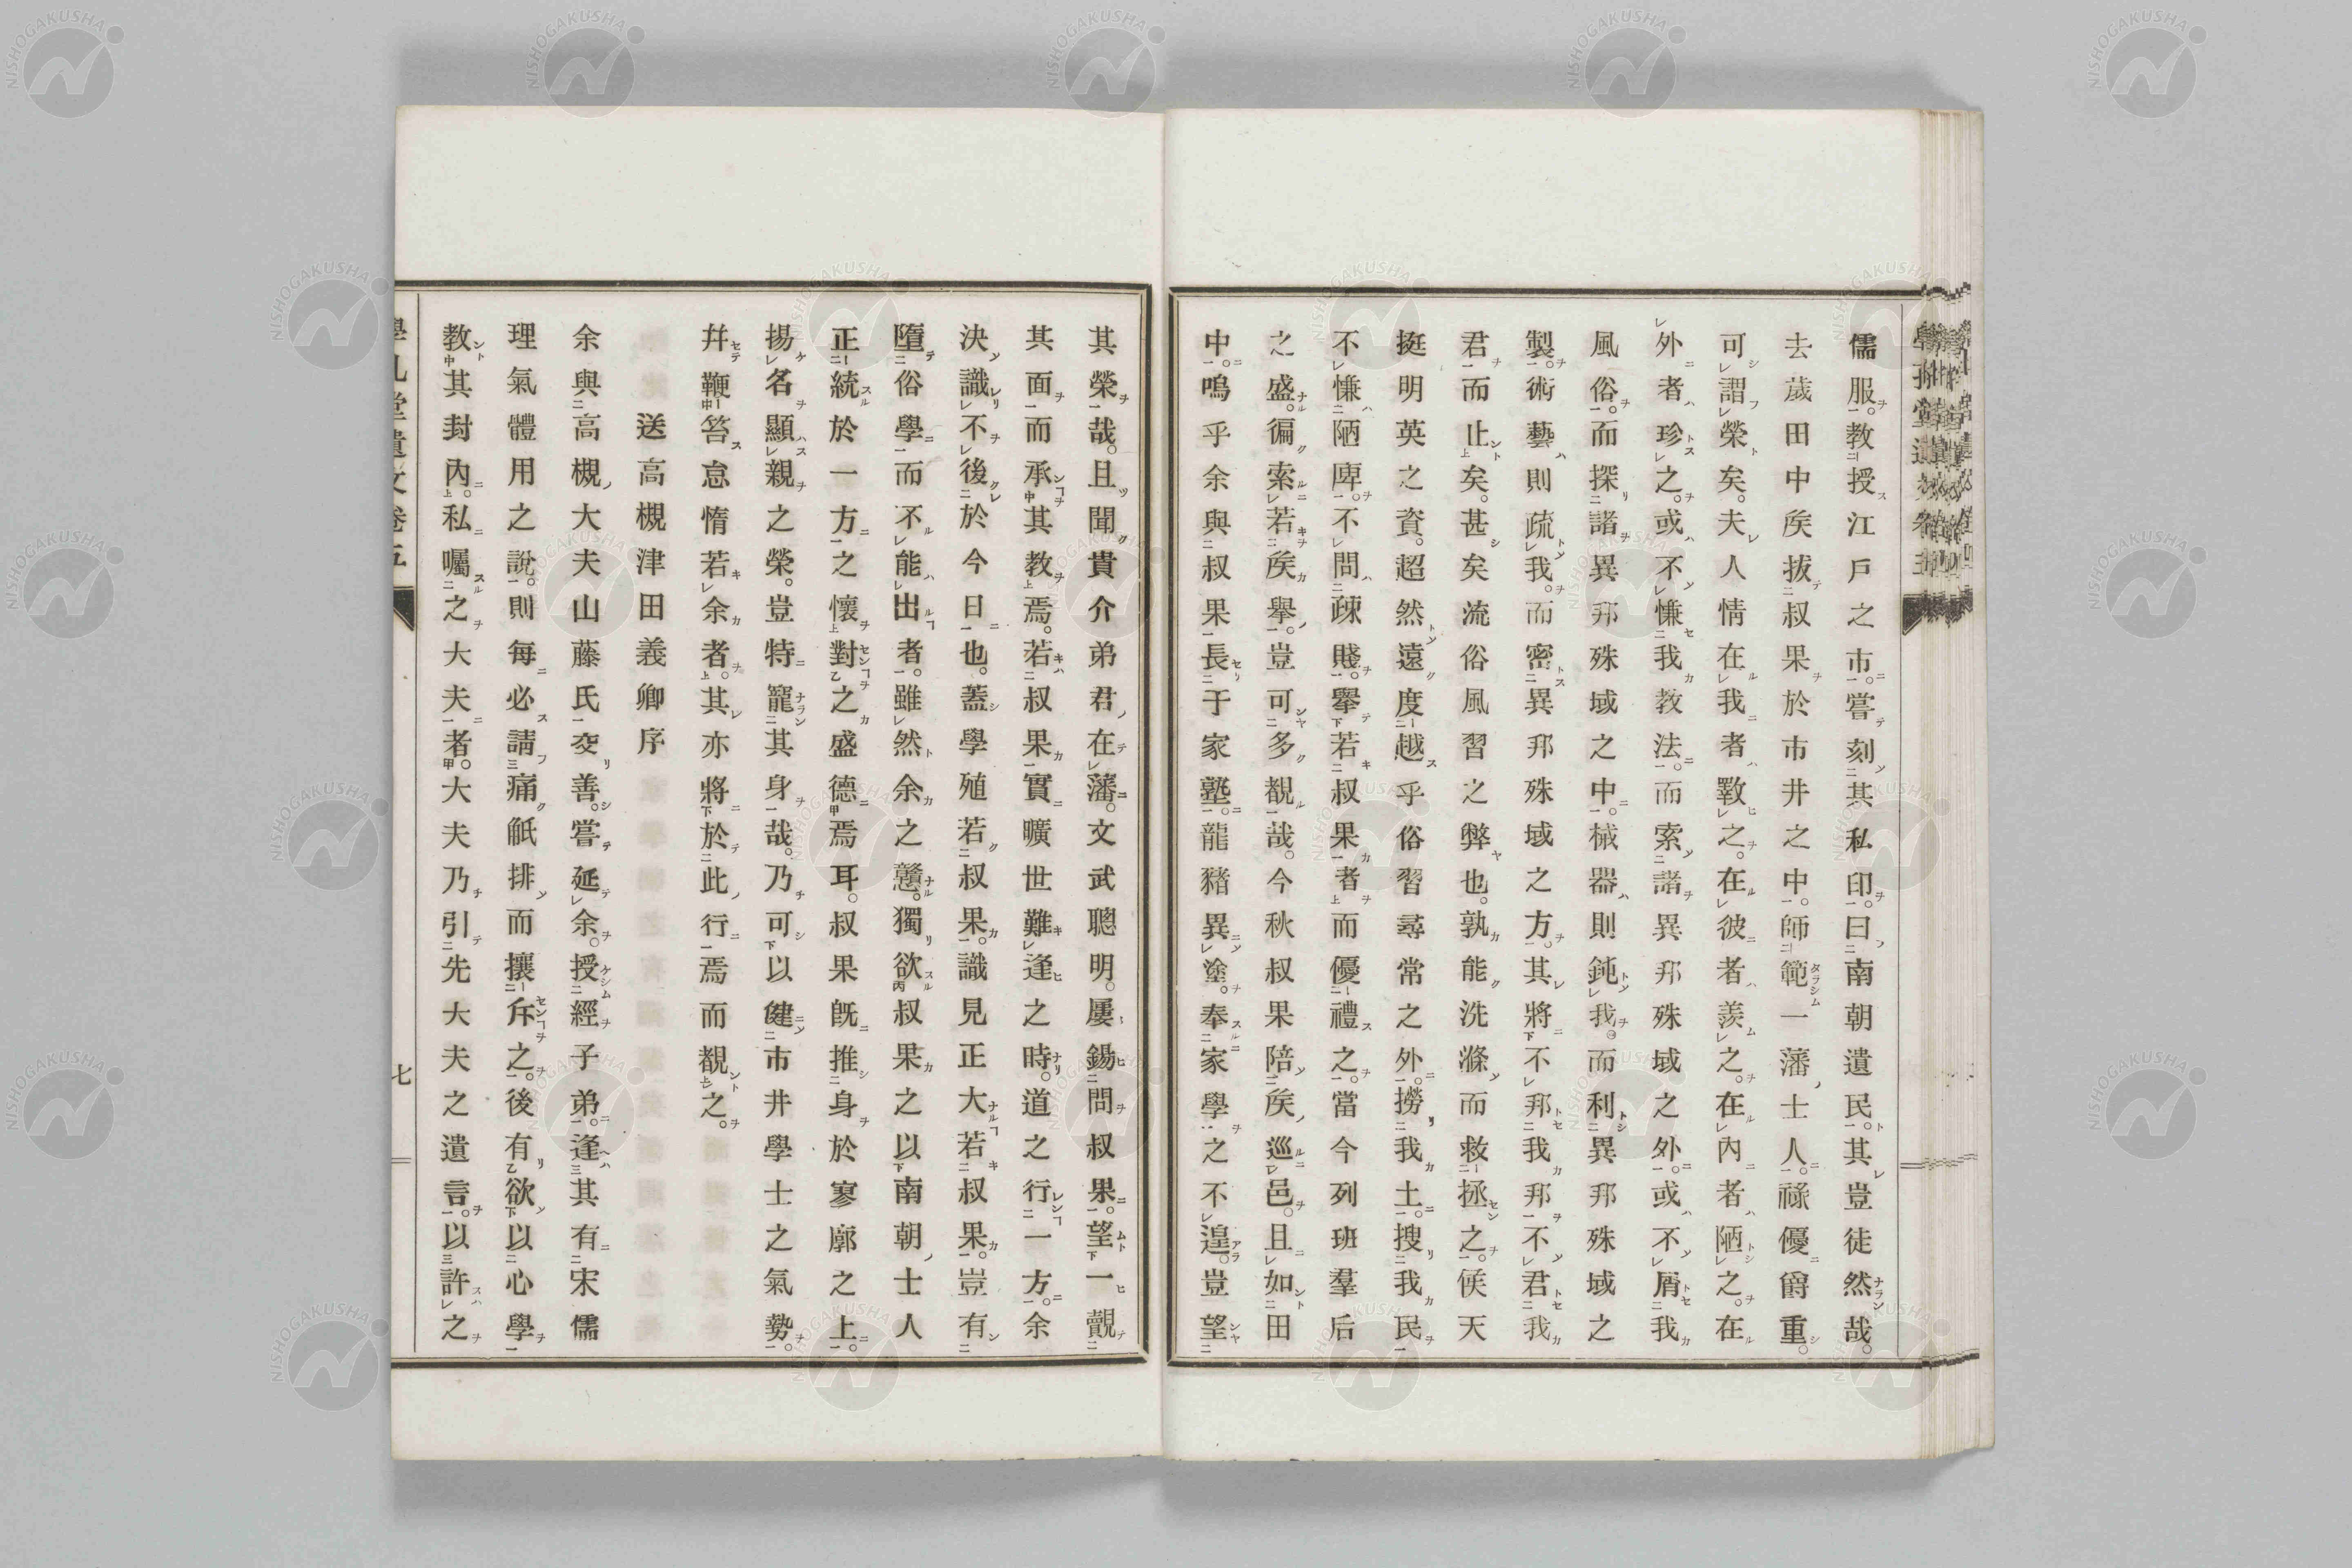 儒服。教授江戶之市。嘗刻其私印。曰南朝遺民。其豈徒然哉。
去歲田中矦拔叔果於市井之中。師範一藩士人。祿優爵重。
可謂榮矣。夫人情在我者斁之。在彼者羨之。在內者陋之。在
外者珍之。或不慊我教法。而索諸異邦殊域之外。或不屑我
風俗。而探諸異邦殊域之中。械器則鈍我。而利異邦殊域之
製。術藝則疏我。而密異邦殊域之方。其將不邦我邦不君我
君而止矣。甚矣流俗風習之弊也。孰能洗滌而救拯之。矦天
挺明英之資。超然遠度越乎俗習尋常之外。撈我土。搜我民
不慊陋庳。不問疎賤。擧若叔果者而優禮之。當今列班羣后
之盛。徧索若矦擧。豈可多覩哉。今秋叔果陪矦巡邑。且如田
中。嗚乎余與叔果長于家塾。龍豬異塗。奉家學之不遑。豈望
其榮哉。且聞貴介弟君在藩。文武聰明。屢錫問叔果。望一覿
其面而承其教焉。若叔果實曠世難逢之時。道之行一方。余
決識不後於今日也。蓋學殖若叔果。識見正大若叔果。豈有
墮俗學而不能出者。雖然余之戇。獨欲叔果之以南朝士人
正統於一方之懷對之盛德焉耳。叔果旣推身於寥廓之上。
揚名顯親之榮。豈特寵其身哉。乃可以健市井學士之氣勢。
幷鞭笞怠惰若余者。其亦將於此行焉而覩之。
送高槻津田義卿序
余與高槻大夫山藤氏交善。嘗延余。授經子弟。逢其有宋儒
理氣體用之說。則每必請痛觝排而攘斥之。後有欲以心學
教其封內。私囑之大夫者。大夫乃引先大夫之遺言。以許之
七